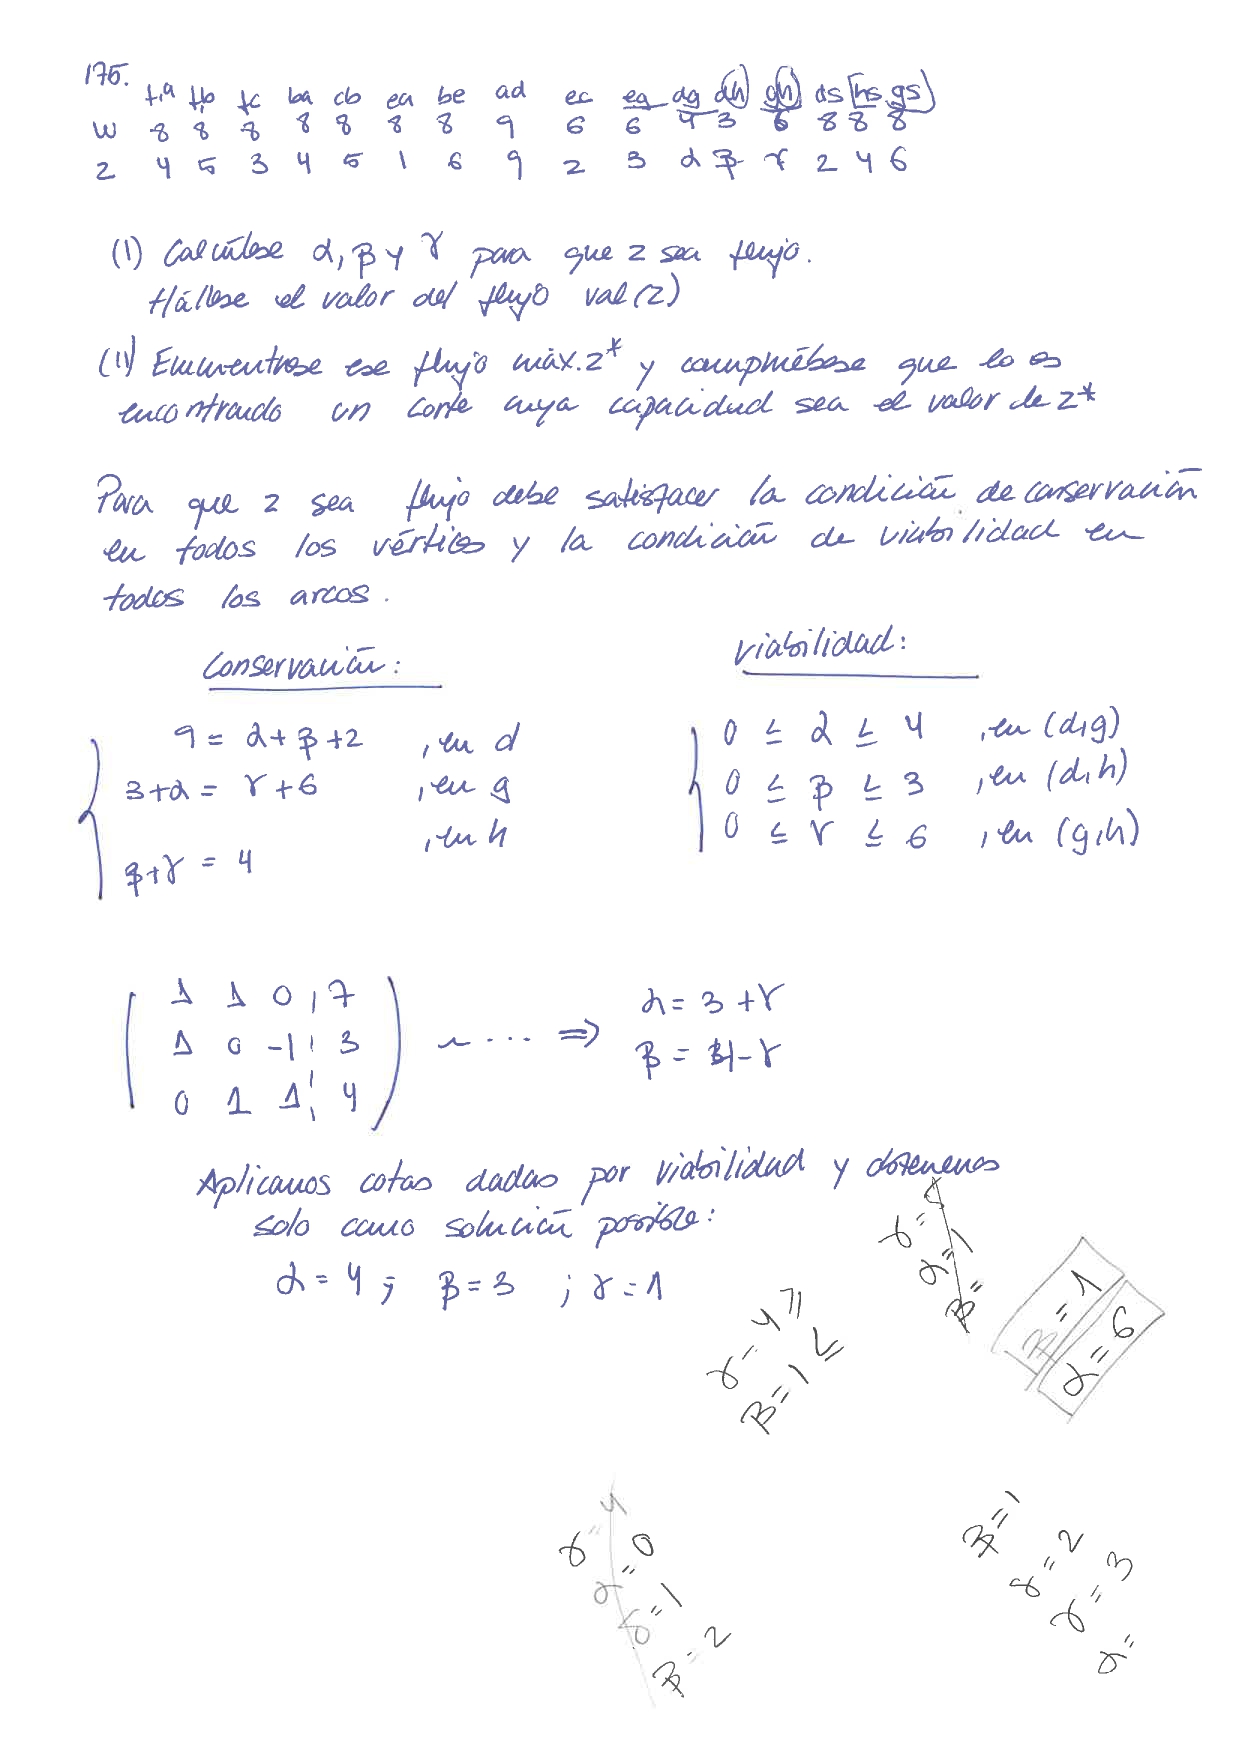 175.
f,a f,b fc ba cb ea be ad ec eg dg dh gh ds hs gs
W 8 8 8 8 8 8 8 9 6 6 4 3 6 8 8 8
z 4 5 3 4 5 1 6 9 2 3 α β γ 2 4 6
(I) Calcúlese α, β y γ para que z sea flujo.
Hállese el valor del flujo val(z)
(II) Encuéntrese ese flujo máx. z* y compruébese que lo es
encontrando un corte cuya capacidad sea el valor de z*
Para que z sea flujo debe satisfacer la condición de conservación
en todos los vértices y la condición de viabilidad en
todos los arcos.
Conservación: Viabilidad:
9 = α + β + 2 , en d 0 ≤ α ≤ 4 , en (d,g)
3 + α = γ + 6 , en g 0 ≤ β ≤ 3 , en (d,h)
β + γ = 4 , en h 0 ≤ γ ≤ 6 , en (g,h)
1 1 0 ¦ 7
1 0 -1 ¦ 3
0 1 1 ¦ 4
~ .... ⇒
α = 3 + γ
β = 4 - γ
Aplicamos cotas dadas por viabilidad y obtenemos
solo como solución posible:
α = 4 ; β = 3 ; γ = 1
α=1
β=
β=1
α=6
γ=4
β=1 ≤
γ=4
α=0
γ=1
β=2
β=1
γ=2
γ=3
γ=